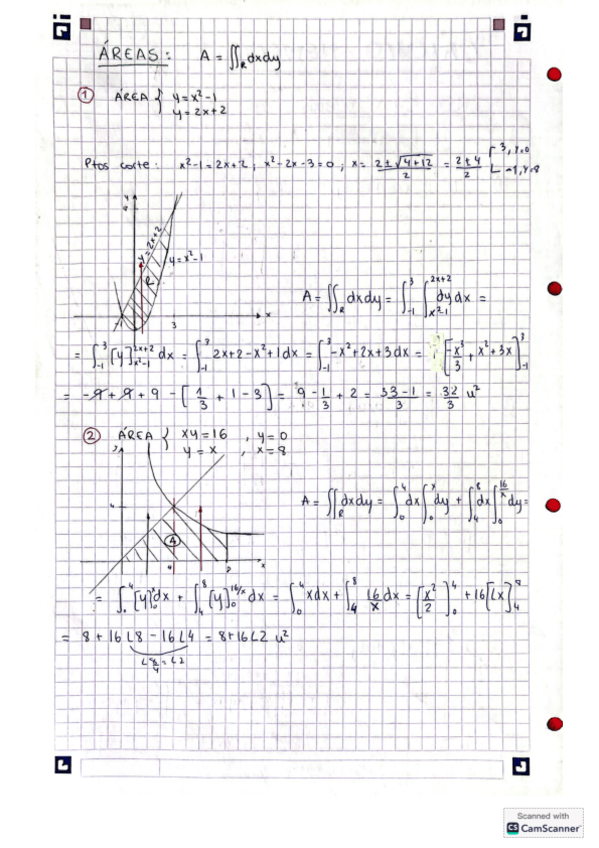 ÁREAS: A = ∬_R dxdy
① ÁREA { y = x²-1
y = 2x+2
Ptos corte: x²-1 = 2x+2 ; x²-2x-3 = 0 ; x = (2±√(4+12))/2 = (2±4)/2 [ 3, y=0
-1, y=8
y
8
y=2x+2
y=x²-1
R
-1 3 x
A = ∬_R dxdy = ∫_{-1}^{3} ∫_{x²-1}^{2x+2} dy dx =
= ∫_{-1}^{3} [y]_{x²-1}^{2x+2} dx = ∫_{-1}^{3} 2x+2-x²+1 dx = ∫_{-1}^{3} -x²+2x+3 dx = [-x³/3 + x²+3x]_{-1}^{3}
= -9+9+9 - [1/3 + 1 - 3] = 9 - 1/3 + 2 = (33-1)/3 = 32/3 u²
② ÁREA { xy=16 , y=0
y=x , x=8
y
4
A
4
x
A = ∬_R dxdy = ∫_0^4 dx ∫_0^x dy + ∫_4^8 dx ∫_0^{16/x} dy =
= ∫_0^4 [y]_0^x dx + ∫_4^8 [y]_0^{16/x} dx = ∫_0^4 x dx + ∫_4^8 16/x dx = [x²/2]_0^4 + 16[Lx]_4^8
= 8 + 16 L8 - 16 L4 = 8+16L2 u²
L 8/4 = L2
Scanned with
CS CamScanner